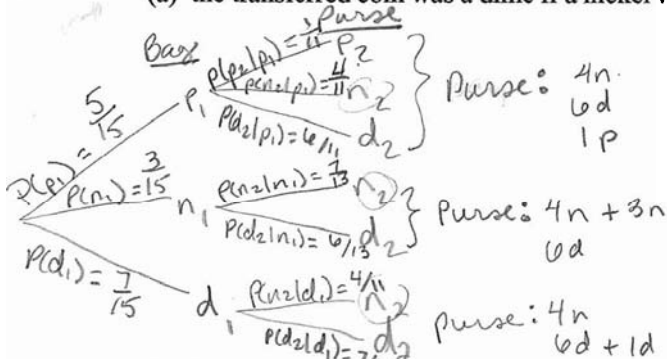 (a) the transferred coin was a dime if a nickel
Bag
Purse
P(p₁) = 5/15
p₁
P(p₂|p₁) = 1/11
p₂
P(n₂|p₁) = 4/11
n₂
P(d₂|p₁) = 6/11
d₂
Purse: 4n
6d
1p
P(n₁) = 3/15
n₁
P(n₂|n₁) = 7/13
n₂
P(d₂|n₁) = 6/13
d₂
Purse: 4n + 3n
6d
P(d₁) = 7/15
d₁
P(n₂|d₁) = 4/11
n₂
P(d₂|d₁) =
d₂
Purse: 4n
6d + 1d